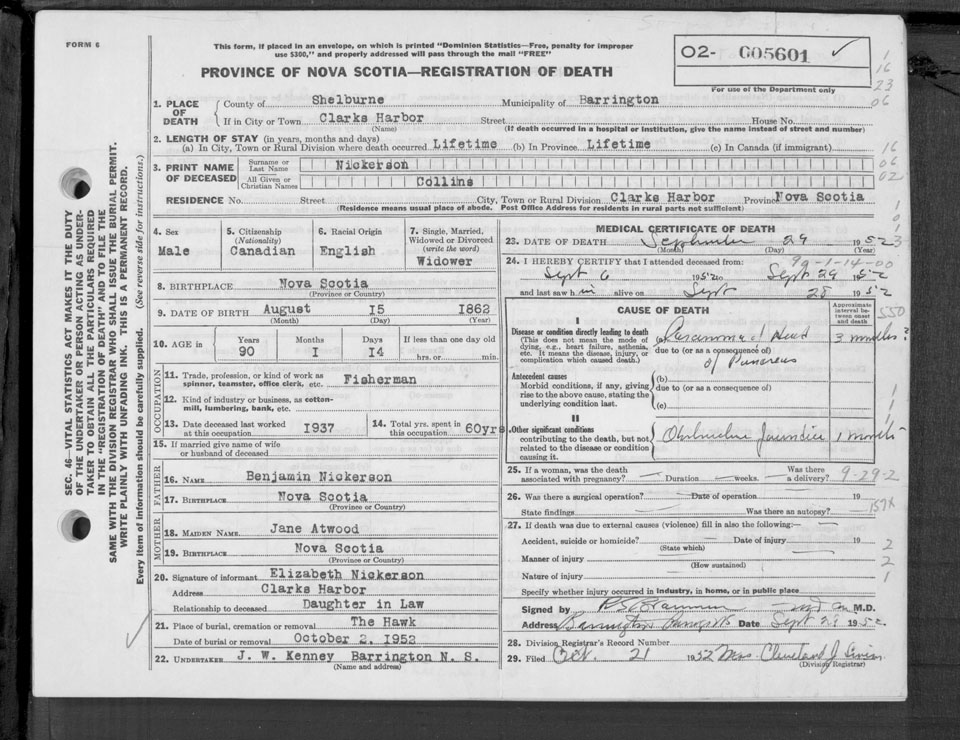 FORM 6
This form, if placed in an envelope, on which is printed "Dominion Statistics—Free, penalty for improper
use $300," and properly addressed will pass through the mail "FREE"
PROVINCE OF NOVA SCOTIA—REGISTRATION OF DEATH
O2- C05601 ✓
For use of the Department only
1. PLACE OF DEATH
County of Shelburne Municipality of Barrington
If in City or Town Clarks Harbor Street House No.
(Name) (If death occurred in a hospital or institution, give the name instead of street and number)
2. LENGTH OF STAY (in years, months and days)
(a) In City, Town or Rural Division where death occurred Lifetime (b) In Province Lifetime (c) In Canada (if immigrant)
3. PRINT NAME OF DECEASED
Surname or Last Name Nickerson
All Given or Christian Names Collins
RESIDENCE No. Street City, Town or Rural Division Clarks Harbor Province Nova Scotia
(Residence means usual place of abode. Post Office Address for residents in rural parts not sufficient)
4. Sex
Male
5. Citizenship
(Nationality)
Canadian
6. Racial Origin
English
7. Single, Married, Widowed or Divorced
(write the word)
Widower
8. BIRTHPLACE Nova Scotia
(Province or Country)
9. DATE OF BIRTH August 15 1862
(Month) (Day) (Year)
10. AGE in Years Months Days If less than one day old
90 I I4 hrs. or min.
OCCUPATION
11. Trade, profession, or kind of work as
spinner, teamster, office clerk, etc. Fisherman
12. Kind of industry or business, as cotton-
mill, lumbering, bank, etc.
13. Date deceased last worked
at this occupation I937
14. Total yrs. spent in
this occupation 60yrs.
15. If married give name of wife
or husband of deceased
FATHER
16. NAME Benjamin Nickerson
17. BIRTHPLACE Nova Scotia
(Province or Country)
MOTHER
18. MAIDEN NAME Jane Atwood
19. BIRTHPLACE Nova Scotia
(Province or Country)
20. Signature of informant Elizabeth Nickerson
Address Clarks Harbor
Relationship to deceased Daughter in Law
21. Place of burial, cremation or removal The Hawk
Date of burial or removal October 2. I952
22. UNDERTAKER J. W. Kenney Barrington N. S.
(Name and address)
MEDICAL CERTIFICATE OF DEATH
23. DATE OF DEATH September 29 1952
(Month) (Day) (Year)
24. I HEREBY CERTIFY that I attended deceased from:
Sept 6 1952 to Sept 29 1952
and last saw h im alive on Sept 28 1952
CAUSE OF DEATH
Approximate interval between onset and death
I
Disease or condition directly leading to death
(This does not mean the mode of
dying, e.g., heart failure, asthenia,
etc. It means the disease, injury, or
complication which caused death.)
(a) Carcinoma of Head 3 months?
due to (or as a consequence of)
of Pancreas
Antecedent causes
Morbid conditions, if any, giving
rise to the above cause, stating the
underlying condition last.
(b)
due to (or as a consequence of)
(c)
II
Other significant conditions
contributing to the death, but not
related to the disease or condition
causing it.
Obstructive Jaundice 1 month
25. If a woman, was the death
associated with pregnancy? Duration weeks. Was there a delivery?
9-29-2
26. Was there a surgical operation? Date of operation 19
State findings Was there an autopsy?
27. If death was due to external causes (violence) fill in also the following:—
Accident, suicide or homicide? Date of injury 19
(State which)
Manner of injury
(How sustained)
Nature of injury
Specify whether injury occurred in industry, in home, or in public place
Signed by M.D.
Address Barrington Date Sept 29 1952
28. Division Registrar's Record Number
29. Filed Oct. 21 1952 Mrs Cleveland J
(Division Registrar)
SEC. 46—VITAL STATISTICS ACT MAKES IT THE DUTY
OF THE UNDERTAKER OR PERSON ACTING AS UNDER-
TAKER TO OBTAIN ALL THE PARTICULARS REQUIRED
IN THE "REGISTRATION OF DEATH" AND TO FILE THE
SAME WITH THE DIVISION REGISTRAR WHO SHALL ISSUE THE BURIAL PERMIT.
WRITE PLAINLY WITH UNFADING INK. THIS IS A PERMANENT RECORD.
Every item of information should be carefully supplied. (See reverse side for instructions.)